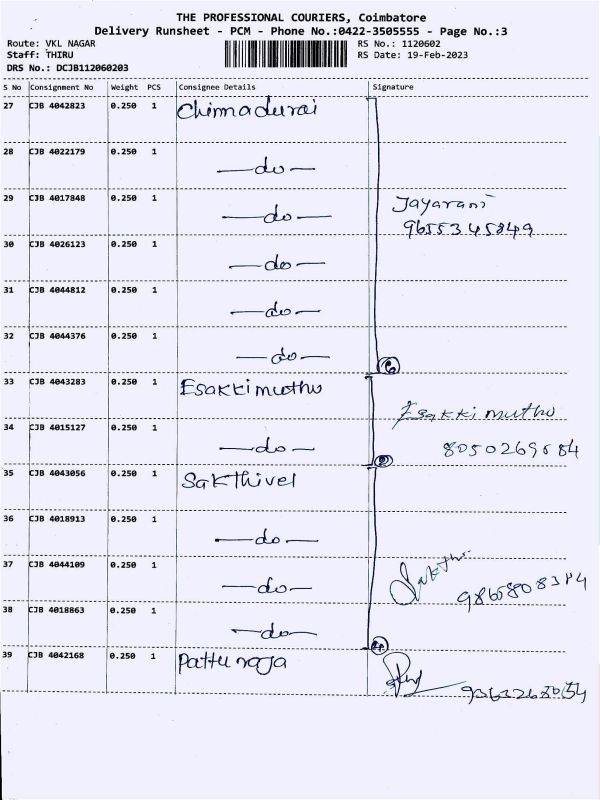 THE PROFESSIONAL COURIERS, Coimbatore
Delivery Runsheet - PCM - Phone No.:0422-3505555 - Page No.:3
Route: VKL NAGAR RS No.: 1120602
Staff: THIRU RS Date: 19-Feb-2023
DRS No.: DCJB112060203
S No Consignment No Weight PCS Consignee Details Signature
27 CJB 4042823 0.250 1 Chinnadurai
28 CJB 4022179 0.250 1 —do—
29 CJB 4017848 0.250 1 —do— Jayarani
9655345849
30 CJB 4026123 0.250 1 —do—
31 CJB 4044812 0.250 1 —do—
32 CJB 4044376 0.250 1 —do— 6
33 CJB 4043283 0.250 1 Esakkimuthu Esakkimuthu
34 CJB 4015127 0.250 1 —do— 8050269584
2
35 CJB 4043056 0.250 1 Sakthivel
36 CJB 4018913 0.250 1 —do—
37 CJB 4044109 0.250 1 —do— Sakthi
38 CJB 4018863 0.250 1 —do— 4
39 CJB 4042168 0.250 1 Pattu raja